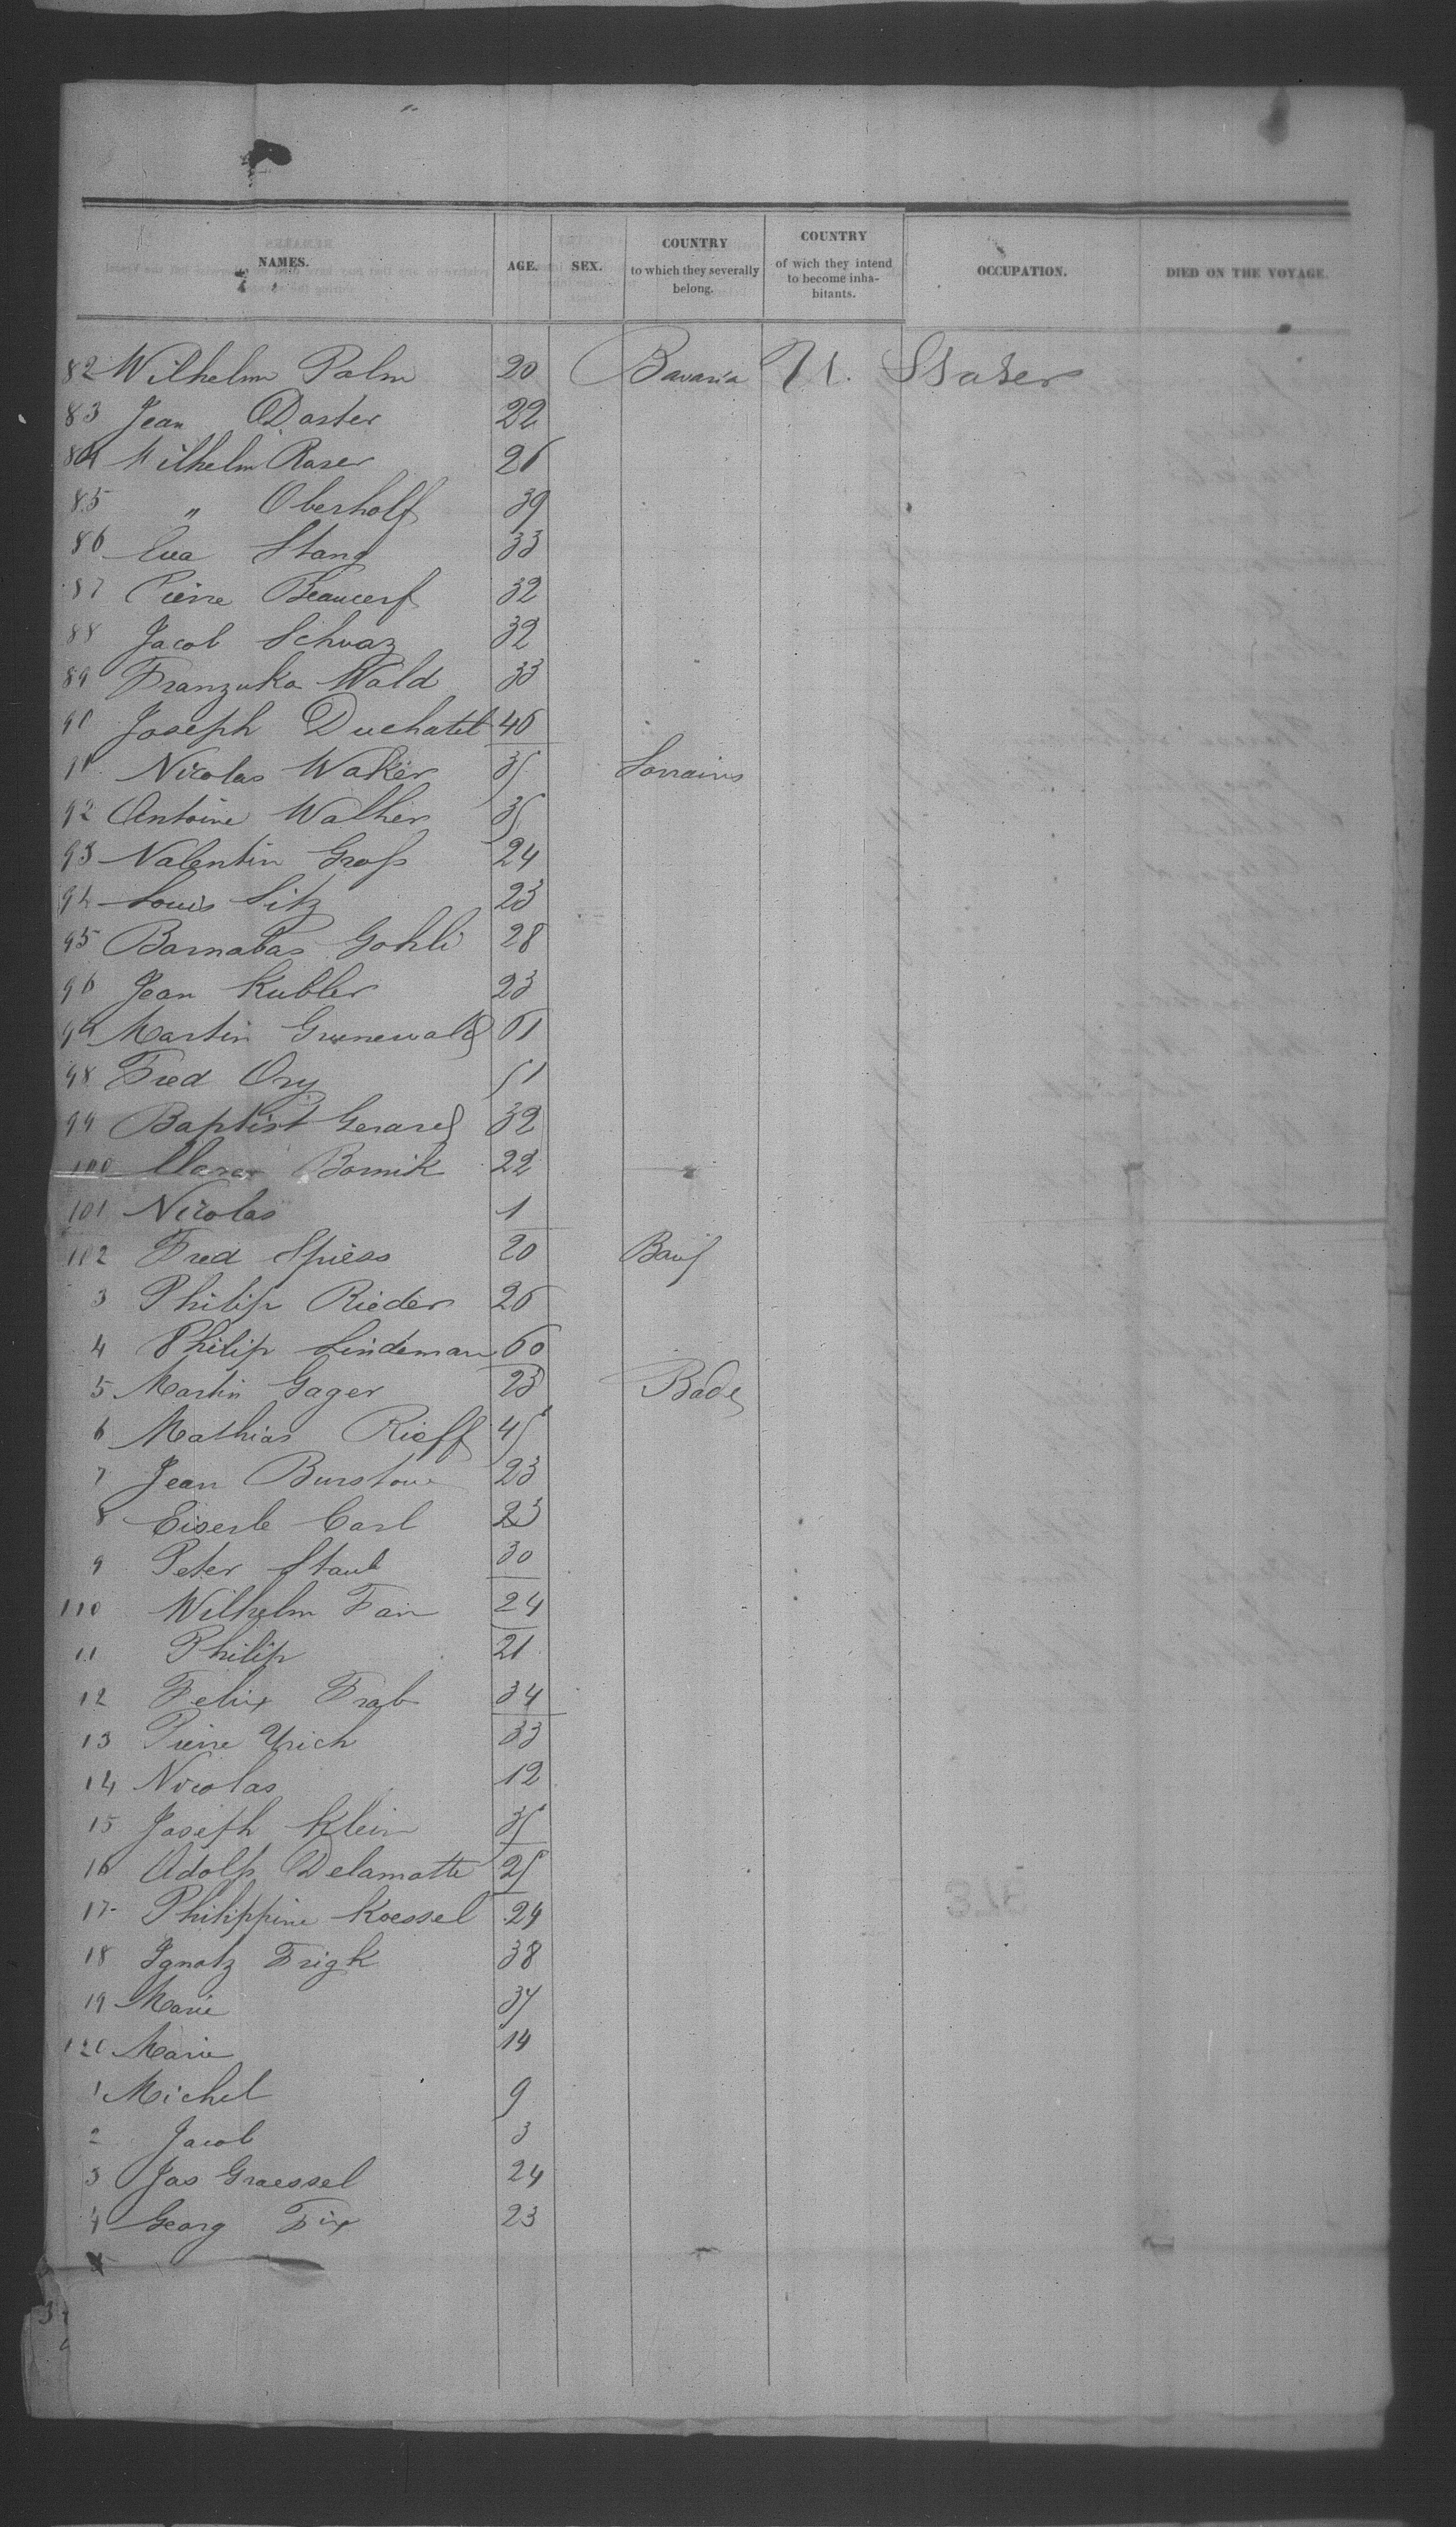 NAMES. AGE. SEX. COUNTRY to which they severally belong. COUNTRY of wich they intend to become inhabitants. OCCUPATION. DIED ON THE VOYAGE.
82 Wilhelm Palm 20 Bavaria U. States
83 Jean Daster 22
84 Wilhelm Raser 26
85 " Oberholf 39
86 Eva Stang 33
87 Pierre Beaucerf 32
88 Jacob Schwaz 32
89 Franzuka Wald 33
90 Joseph Duchatel 46
91 Nicolas Waker 35 Lorrains
92 Antoine Walher 35
93 Valentin Groß 24
94 Louis Sitz 23
95 Barnabas Gohli 28
96 Jean Kubler 23
97 Martin Grunewald 61
98 Fred Ory 51
99 Baptist Gerard 32
100 Clara Bornik 22
101 Nicolas 1
102 Fred Spiess 20
3 Philip Rieder 26
4 Philip Lindeman 60
5 Martin Gager 23 Bade
6 Mathias Rieff 45
7 Jean 23
8 Eiserle Carl 23
9 Peter Staub 30
110 Wilhelm Fan 24
11 Philip 21
12 Felix Frab 34
13 Pierre Yrich 33
14 Nicolas 12
15 Joseph Klein 35
16 Adolf Delamotte 25
17 Philippine Koessel 24
18 Ignatz Frigk 38
19 Marie 37
120 Marie 14
1 Michel 9
2 Jacob 3
3 Jos Graessel 24
4 Georg Fix 23